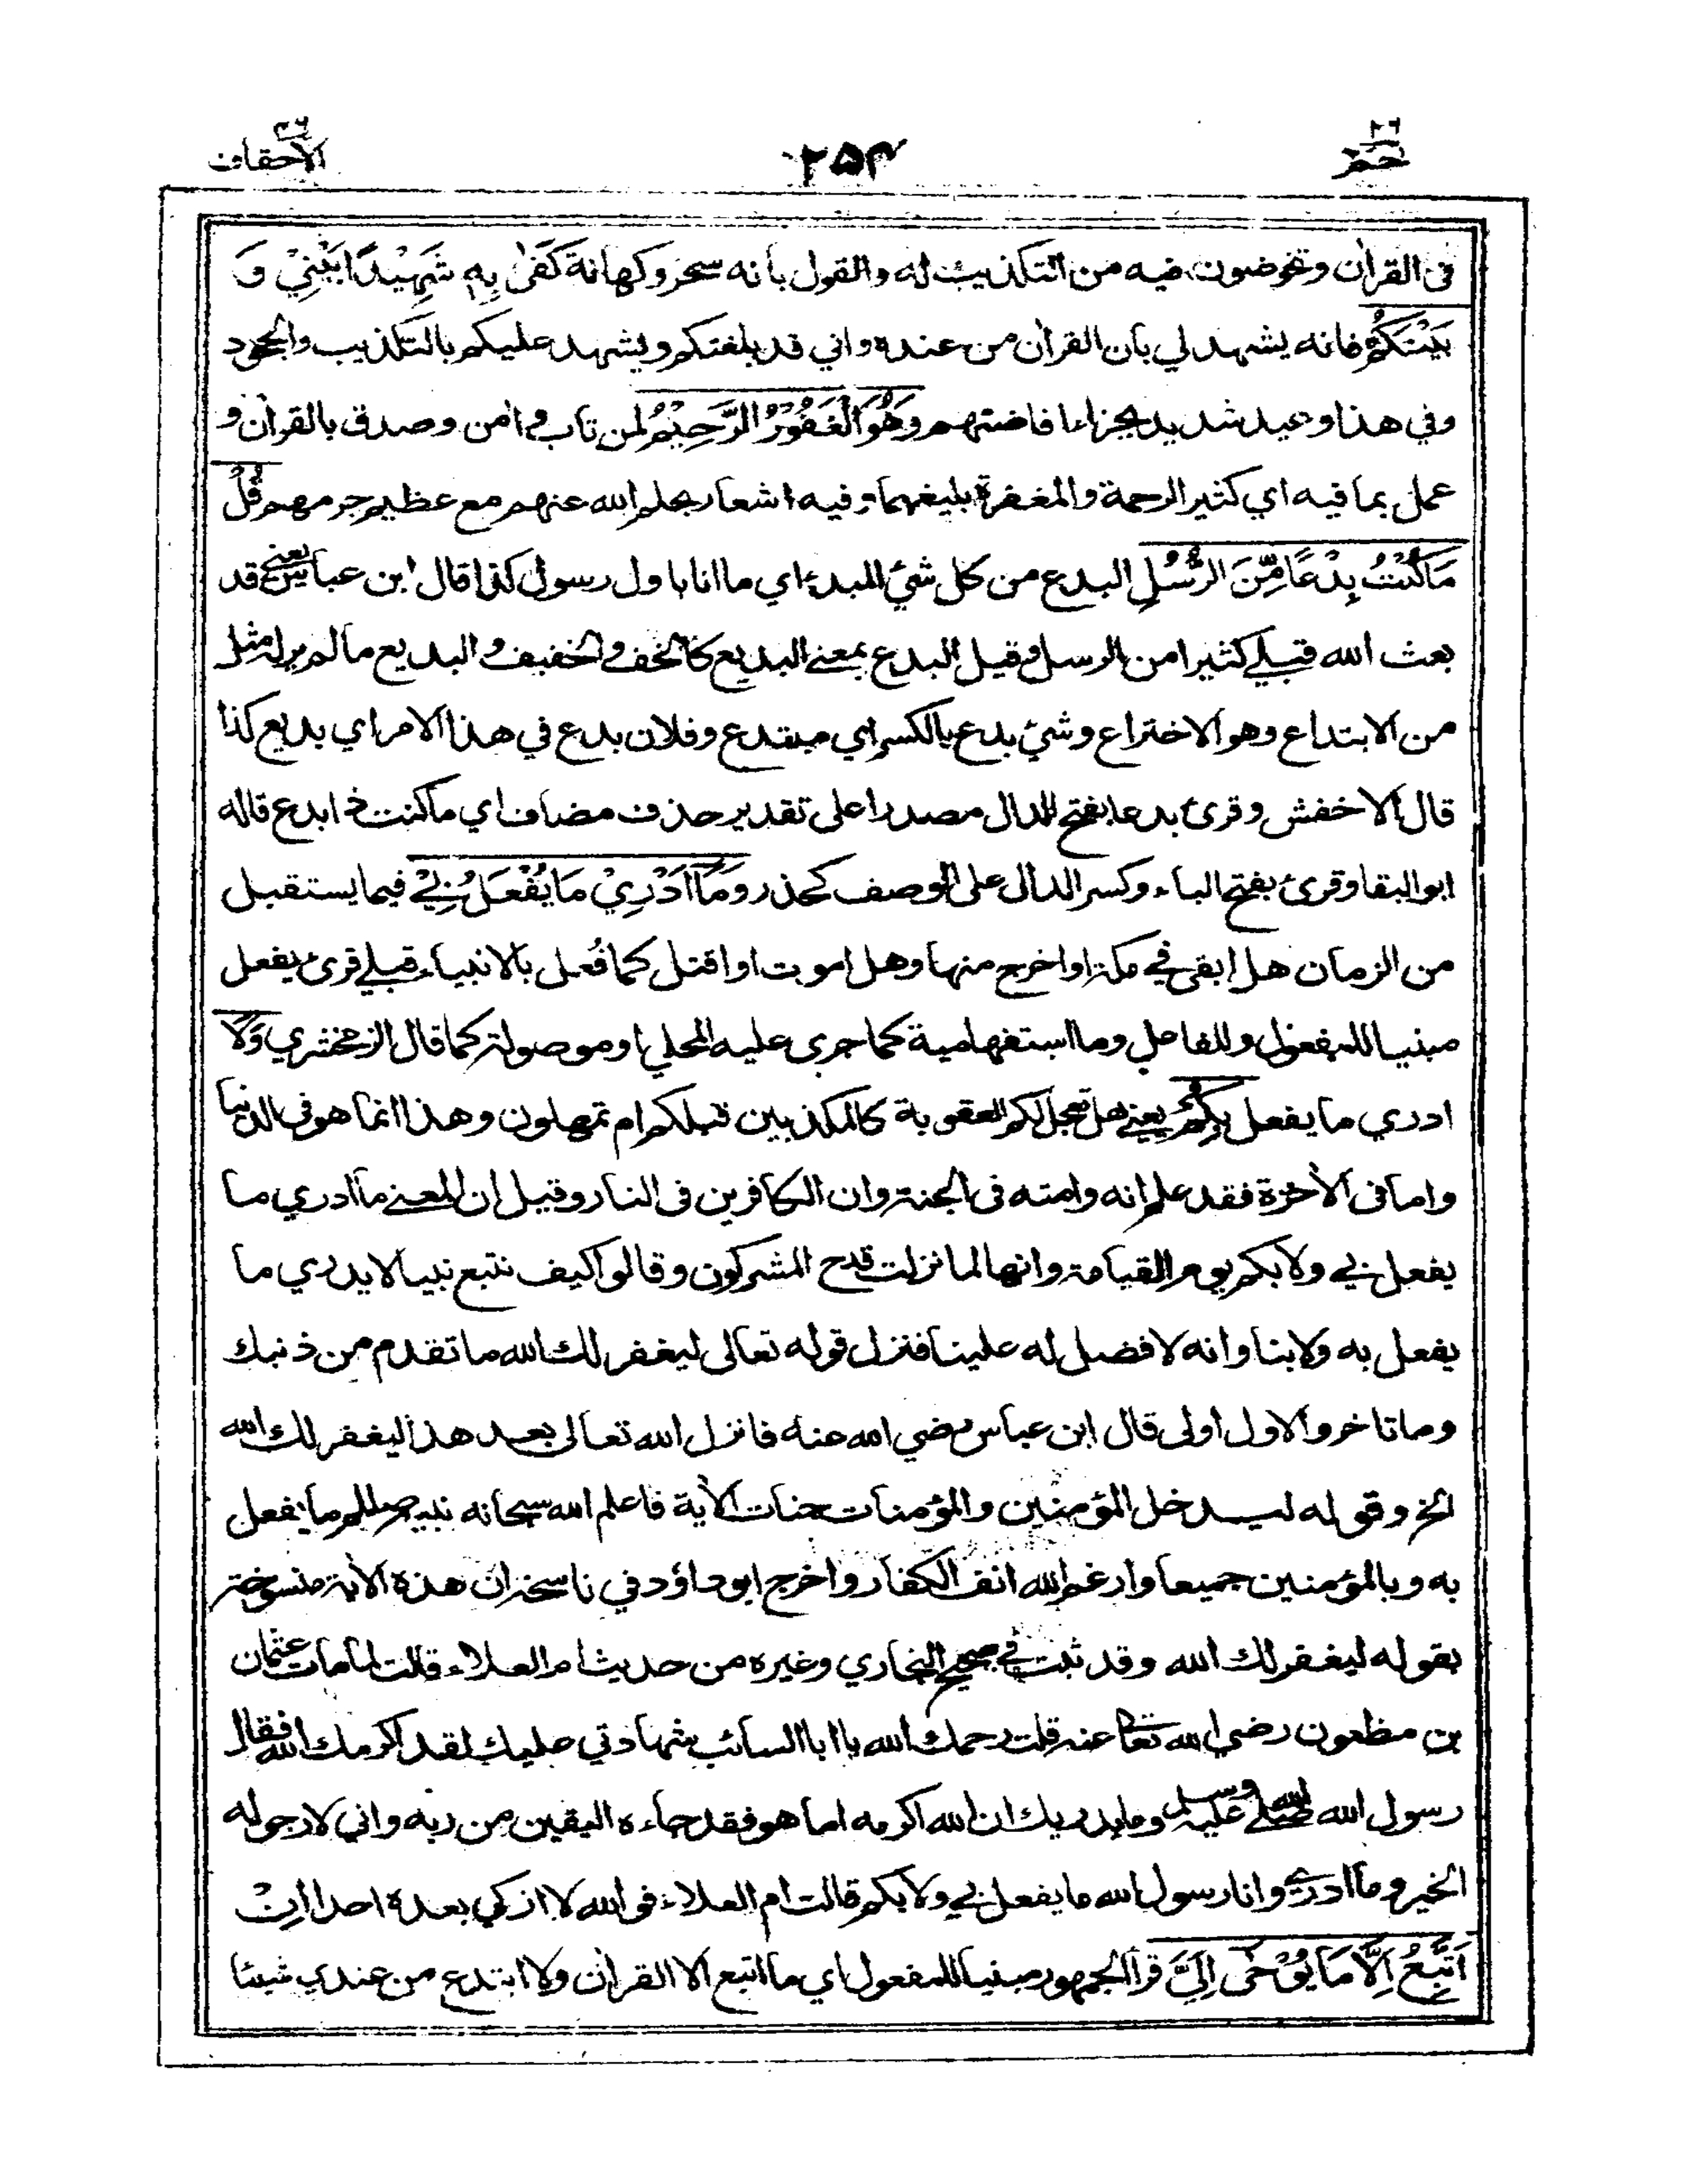 ٢٦
حم
٢٥٤
٤٦
الأحقاف
في القرآن وتخوضون فيه من التكذيب له والقول بانه سحر وكهانة كَفٰى بِهٖ شَهِيْدًا بَيْنِيْ وَ
بَيْنَكُمْ فانه يشهد لي بان القرآن من عنده واني قد بلغتكم ويشهد عليكم بالتكذيب والجحود
وفي هذا وعيد شديد بجزاء افاضتهم وَهُوَ الْغَفُوْرُ الرَّحِيْمُ لمن تاب وآمن وصدق بالقرآن و
عمل بما فيه اي كثير الرحمة والمغفرة بليغهما وفيه اشعار بحلم الله عنهم مع عظيم جرمهم قُلْ
مَا كُنْتُ بِدْعًا مِّنَ الرُّسُلِ البدع من كل شئ المبدء اي ما انا باول رسول كذا قال ابن عباس يعني قد
بعث الله قبلي كثيرا من الرسل وقيل البدع بمعنى البديع كالخف والخفيف والبديع ما لم ير له مثل
من الابتداع وهو الاختراع وشئ بدع بالكسر اي مبتدع وفلان بدع في هذا الامر اي بديع كذا
قال الاخفش وقرئ بدعا بفتح الدال مصدرا على تقدير حذف مضاف اي ما كنت ذا بدع قاله
ابو البقا وقرئ بفتح الباء وكسر الدال على الوصف كحذر وَمَآ اَدْرِيْ مَا يُفْعَلُ بِيْ فيما يستقبل
من الزمان هل ابقى في مكة او اخرج منها وهل اموت او اقتل كما فُعل بالانبياء قبلي قرئ يفعل
مبنيا للمفعول وللفاعل وما استفهامية كما جرى عليه المحلي او موصولة كما قال الزمخشري وَلَا
ادري ما يفعل بِكُمْ يعني هل تعجل لكم العقوبة كالمكذبين قبلكم ام تمهلون وهذا انما هو في الدنيا
واما في الآخرة فقد علم انه وامته في الجنة وان الكافرين في النار وقيل ان المعنى ما ادري ما
يفعل بي ولا بكم يوم القيامة وانها لما نزلت قدح المشركون وقالوا كيف نتبع نبيا لا يدري ما
يفعل به ولا بنا وانه لا فضل له علينا فنزل قوله تعالى ليغفر لك الله ما تقدم من ذنبك
وما تاخر والاول اولى قال ابن عباس رضي الله عنه فانزل الله تعالى بعد هذا ليغفر لك الله
الخ وقوله ليدخل المؤمنين والمؤمنات جنات الآية فاعلم الله سبحانه نبيه صللم ما يفعل
به وبالمؤمنين جميعا وارغم الله انف الكفار واخرج ابو داؤد في ناسخه ان هذه الآية منسوخة
بقوله ليغفر لك الله وقد ثبت في صحيح البخاري وغيره من حديث ام العلاء قالت لما مات عثمان
بن مظعون رضي الله تعالى عنه قلت رحمك الله يا ابا السائب شهادتي عليك لقد اكرمك الله فقال
رسول الله صلى الله عليه وسلم وما يدريك ان الله اكرمه اما هو فقد جاءه اليقين من ربه واني لارجو له
الخير وما ادري وانا رسول الله ما يفعل بي ولا بكم قالت ام العلاء فو الله لا ازكي بعده احدا اِنْ
اَتَّبِعُ اِلَّا مَا يُوْحٰى اِلَيَّ قرأ الجمهور مبنيا للمفعول اي ما اتبع الا القرآن ولا ابتدع من عندي شيئا